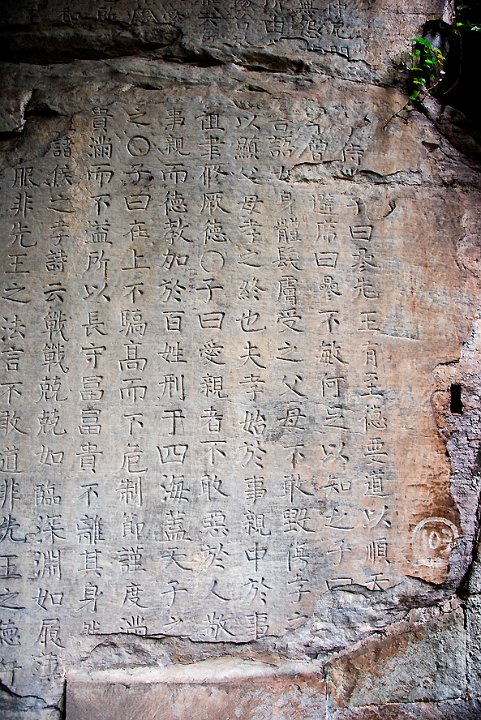 侍子曰參先王有至德要道以順天
曾避席曰參不敏何足以知之子曰
語身體髮膚受之父母不敢毀傷孝之
以顯父母孝之終也夫孝始於事親中於事
祖聿脩厥德〇子曰愛親者不敢惡於人敬
事親而德教加於百姓刑于四海蓋天子之
之〇子曰在上不驕高而不危制節謹度滿
貴滿而不溢所以長守富富貴不離其身然
諸侯之孝詩云戰戰兢兢如臨深淵如履薄
服非先王之法言不敢道非先王之德行